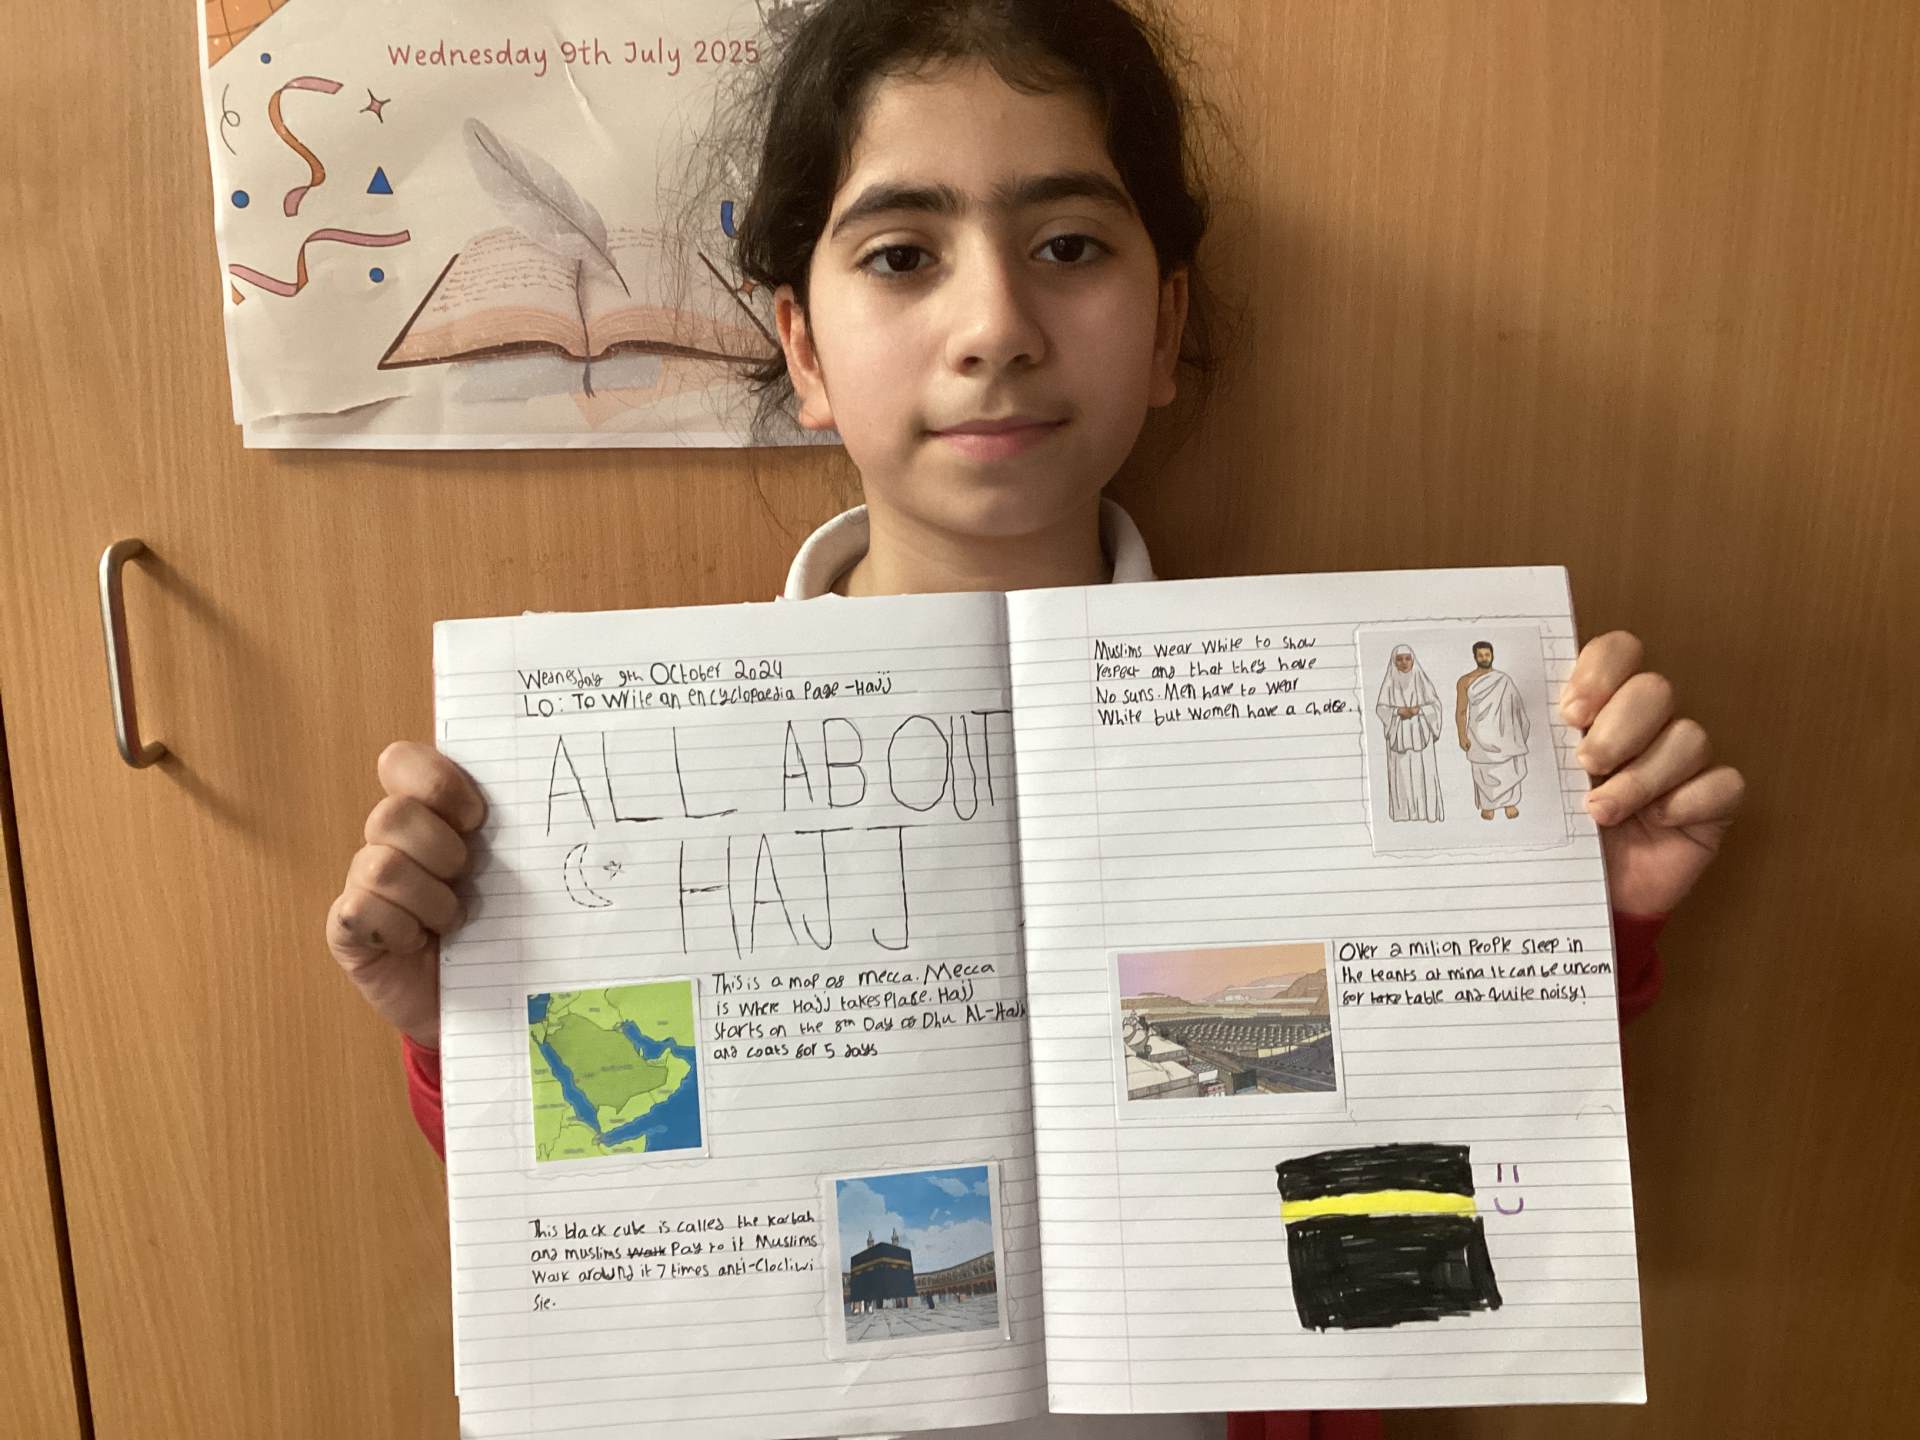 Wednesday 9th July 2025
Wednesday 9th October 2024
LO: To write an encyclopaedia Page - Hajj
ALL ABOUT
HAJJ
This is a map of mecca. Mecca
is where Hajj takes Place. Hajj
Starts on the 8th Day of Dhu AL-Hajj
and coats for 5 days
This black cube is called the Karbah
and muslims Walk Pay to it Muslims
Walk around it 7 times anti-Clocliwi
sie.
Muslims wear white to show
respect and that they have
No suns. Men have to wear
White but women have a choise.
Over 2 milion People sleep in
the teants at mina It can be uncom
for take table and quite noisy!